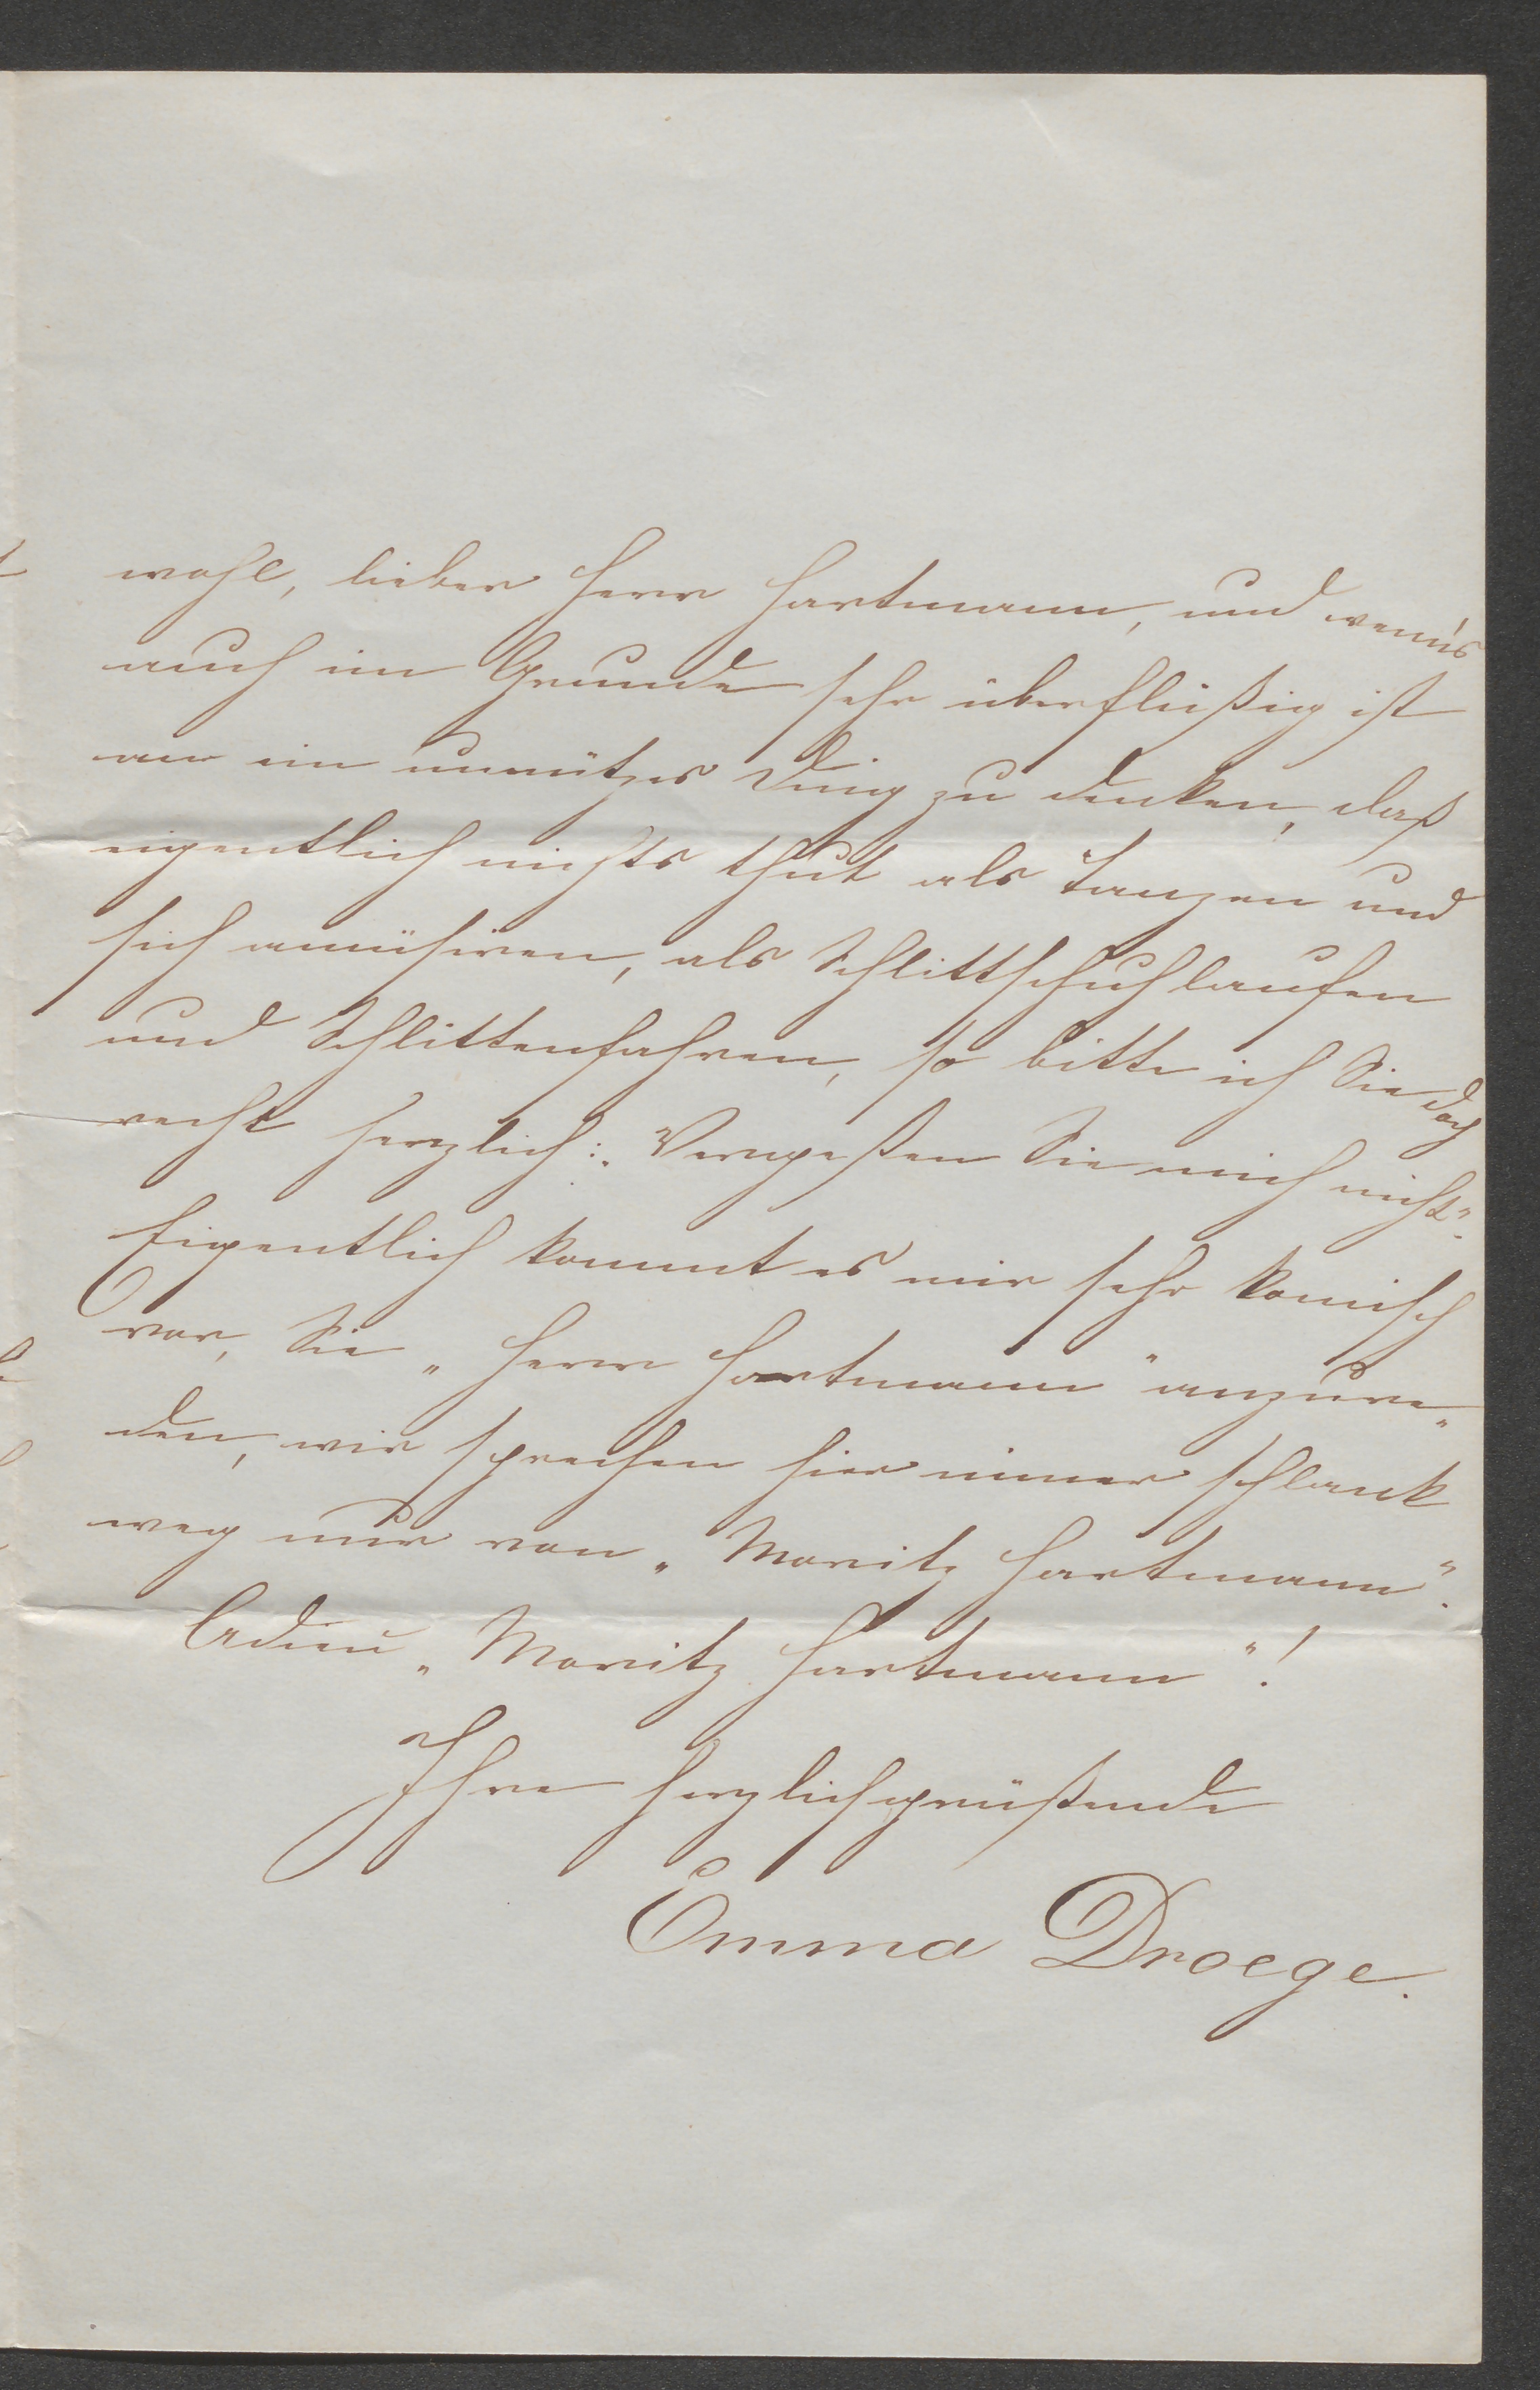 wohl, lieber Herr Hartmann, und wenn's
auch im Grunde sehr überflüßig ist
an ein unnützes Ding zu denken, daß
eigentlich nichts thut als tanzen und
sich amüsiren, als Schlittschuhlaufen
und Schlittenfahren, so bitte ich Sie doch
recht herzlich: „Vergeßen Sie mich nicht“.
Eigentlich kommt es mir sehr komisch
vor, Sie „Herr Hartmann“ anzure„
den, wir sprechen hier immer schlank
weg nur von „Moritz Hartmann“.
Adieu „Moritz Hartmann“!
Ihre herzlichgrüßende
Emma Droege.